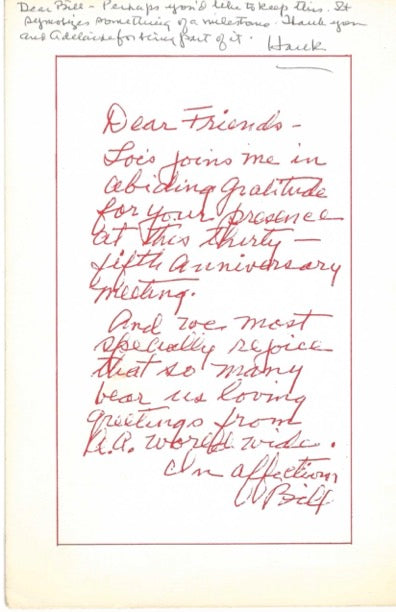 Dear Bill - Perhaps you'd like to keep this. It
symbolizes something of a milestone. Thank you
and Adelaide for being part of it.
Hank
Dear Friends -
Lois joins me in
abiding gratitude
for your presence
at this thirty -
fifth Anniversary
meeting.
And we most
specially rejoice
that so many
bear us loving
greetings from
A.A. world wide.
In affection
Bill